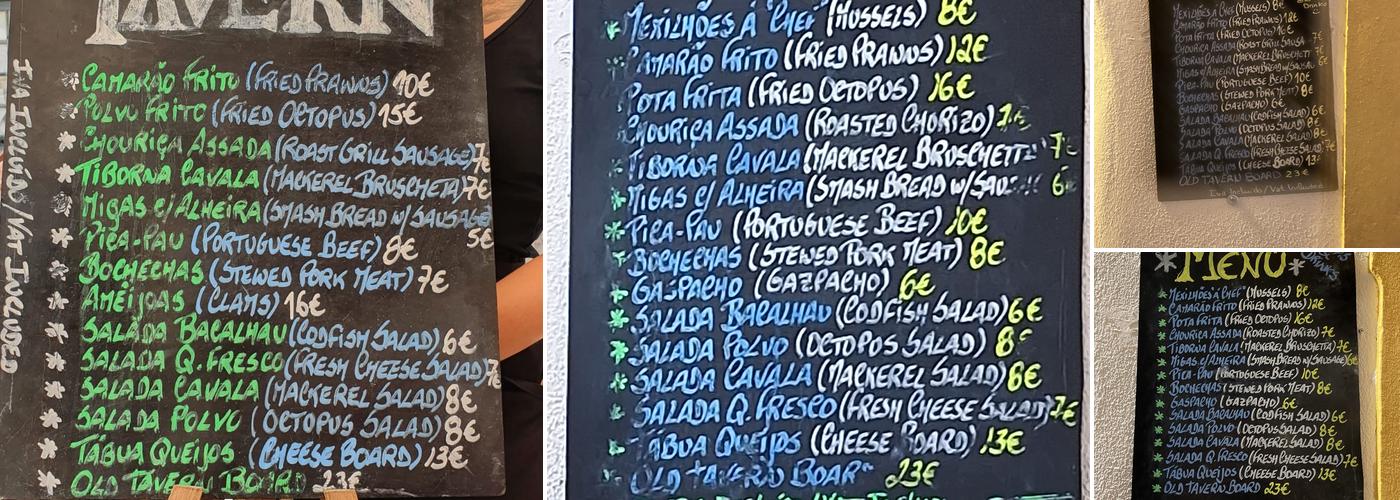 TAVERN
CAMARÃO FRITO (FRIED PRAWNS) 10€
POLVO FRITO (FRIED OCTOPUS) 15€
CHOURIÇA ASSADA (ROAST GRILL SAUSAGE) 7€
TIBORNA CAVALA (MACKEREL BRUSCHETA) 7€
MIGAS c/ ALHEIRA (SMASH BREAD w/ SAUSAGE)
5€
PICA-PAU (PORTUGUESE BEEF) 8€
BOCHECHAS (STEWED PORK MEAT) 7€
AMÊIJOAS (CLAMS) 16€
SALADA BACALHAU (CODFISH SALAD) 6€
SALADA Q. FRESCO (FRESH CHEESE SALAD) 7€
SALADA CAVALA (MACKEREL SALAD) 8€
SALADA POLVO (OCTOPUS SALAD) 8€
TÁBUA QUEIJOS (CHEESE BOARD) 13€
OLD TAVERN BOARD 23€
IVA INCLUÍDO/VAT INCLUDED
MEXILHÕES À "CHEF" (MUSSELS) 8€
CAMARÃO FRITO (FRIED PRAWNS) 12€
POTA FRITA (FRIED OCTOPUS) 16€
CHOURIÇA ASSADA (ROASTED CHORIZO) 7€
TIBORNA CAVALA (MACKEREL BRUSCHETTA) 7€
MIGAS c/ ALHEIRA (SMASH BREAD w/ SAUS 6€
PICA-PAU (PORTUGUESE BEEF) 10€
BOCHECHAS (STEWED PORK MEAT) 8€
GASPACHO (GAZPACHO) 6€
SALADA BACALHAU (CODFISH SALAD) 6€
SALADA POLVO (OCTOPUS SALAD) 8€
SALADA CAVALA (MACKEREL SALAD) 8€
SALADA Q. FRESCO (FRESH CHEESE SALAD) 7€
TÁBUA QUEIJOS (CHEESE BOARD) 13€
OLD TAVERN BOAR 23€
MEXILHÕES À "CHEF" (MUSSELS) 8€
CAMARÃO FRITO (FRIED PRAWNS) 12€
POTA FRITA (FRIED OCTOPUS) 16€
CHOURIÇA ASSADA (ROAST GRILL SAUSA 7€
TIBORNA CAVALA (MACKEREL BRUSCHE 7€
MIGAS c/ ALHEIRA (SMASH BREAD w/ SAU 6€
PICA-PAU (PORTUGUESE BEEF) 10€
BOCHECHAS (STEWED PORK MEAT) 8€
GASPACHO (GAZPACHO) 6€
SALADA BACALHAU (CODFISH SALAD) 6€
SALADA POLVO (OCTOPUS SALAD) 8€
SALADA CAVALA (MACKEREL SALAD) 8€
SALADA Q. FRESCO (FRESH CHEESE SALAD) 7€
TÁBUA QUEIJOS (CHEESE BOARD) 13€
OLD TAVERN BOARD 23€
Iva Incluído/Vat Included
MENU
MEXILHÕES À "CHEF" (MUSSELS) 8€
CAMARÃO FRITO (FRIED PRAWNS) 12€
POTA FRITA (FRIED OCTOPUS) 16€
CHOURIÇA ASSADA (ROASTED CHORIZO) 7€
TIBORNA CAVALA (MACKEREL BRUSCHETTA) 7€
MIGAS c/ ALHEIRA (SMASH BREAD w/ SAUSAGE) 6€
PICA-PAU (PORTUGUESE BEEF) 10€
BOCHECHAS (STEWED PORK MEAT) 8€
GASPACHO (GAZPACHO) 6€
SALADA BACALHAU (CODFISH SALAD) 6€
SALADA POLVO (OCTOPUS SALAD) 8€
SALADA CAVALA (MACKEREL SALAD) 8€
SALADA Q. FRESCO (FRESH CHEESE SALAD) 7€
TÁBUA QUEIJOS (CHEESE BOARD) 13€
OLD TAVERN BOARD 23€